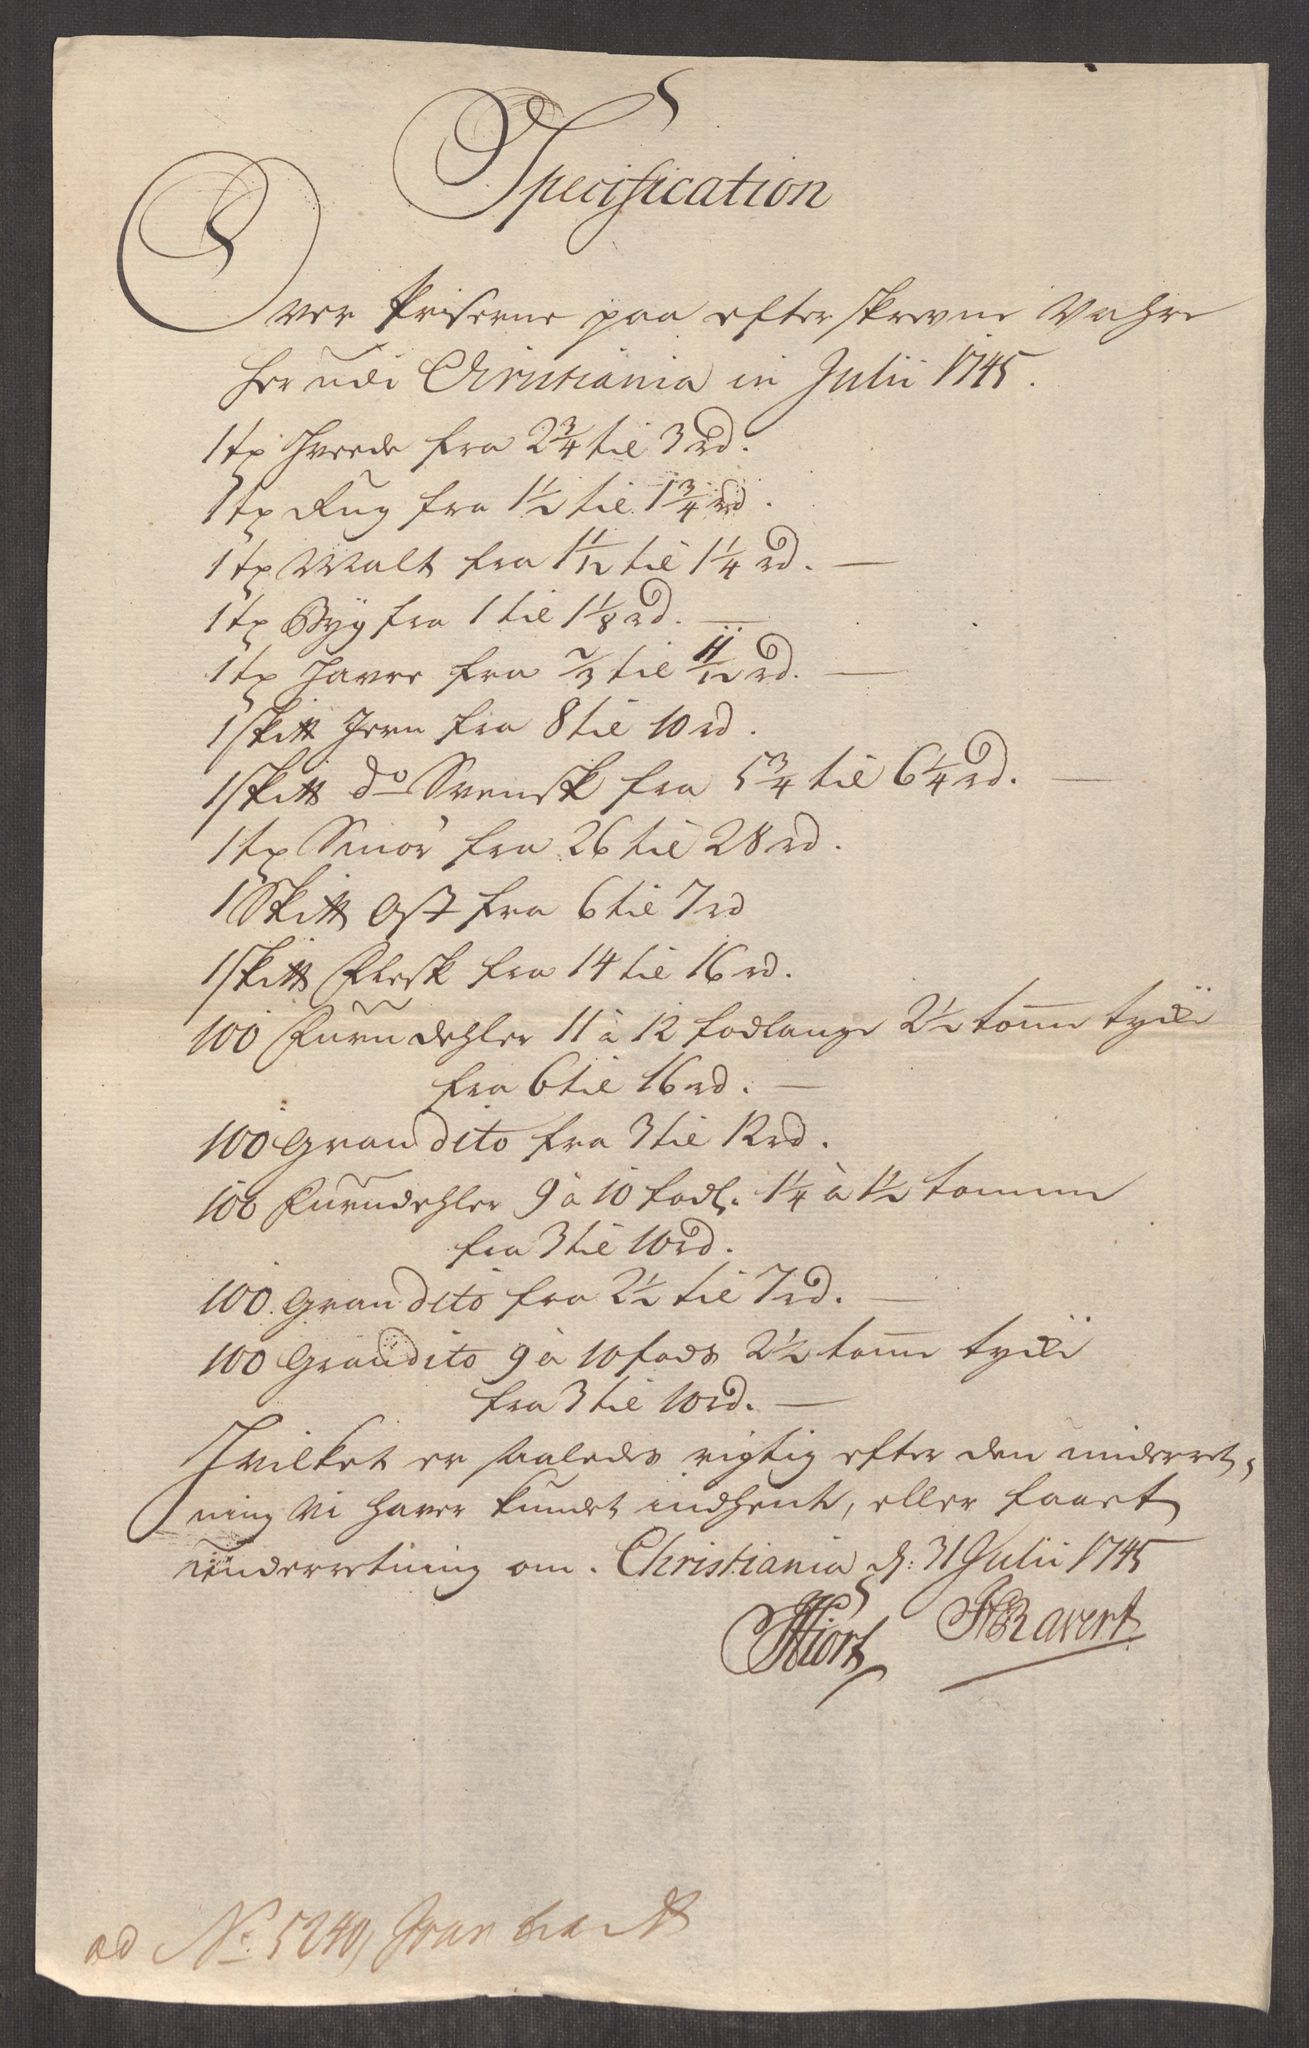 Specification
Over Priserne paa efterskrevne Vahre
her udi Christiania in Julii 1745.
1 tø Hvede fra 2 3/4 til 3 rd.
1 tø Rug fra 1 1/2 til 1 3/4 rd.
1 tø Malt fra 1 1/12 til 1 1/4 rd.
1 tø Byg fra 1 til 1 1/8 rd.
1 tø Havre fra 2/3 til 11/12 rd.
1 skitt Jern fra 8 til 10 rd.
1 skitt do Svensk fra 5 3/4 til 6 1/4 rd.
1 tø Smör fra 26 til 28 rd.
1 Skitt Ost fra 6 til 7 rd
1 skitt Flesk fra 14 til 16 rd.
100 Furu dehler 11 à 12 fodlange 2 1/2 tome tyke
fra 6 til 16 rd.
100 Gran dito fra 3 til 12 rd.
100 Furudehler 9 à 10 fodl. 1 1/4 à 1 1/2 tomme
fra 3 til 10 rd.
100. Gran dito fra 2 1/2 til 7 rd.
100 Gran dito 9 à 10 fods 2 1/2 tome tyke
fra 3 til 10 rd.
Hvilket er saaledes rigtig efter den underret-
ning Vi haver kundet indhente, eller faaet
underretning om. Christiania d: 31 Julii 1745
Hiort Ravert
ad No. 5240,